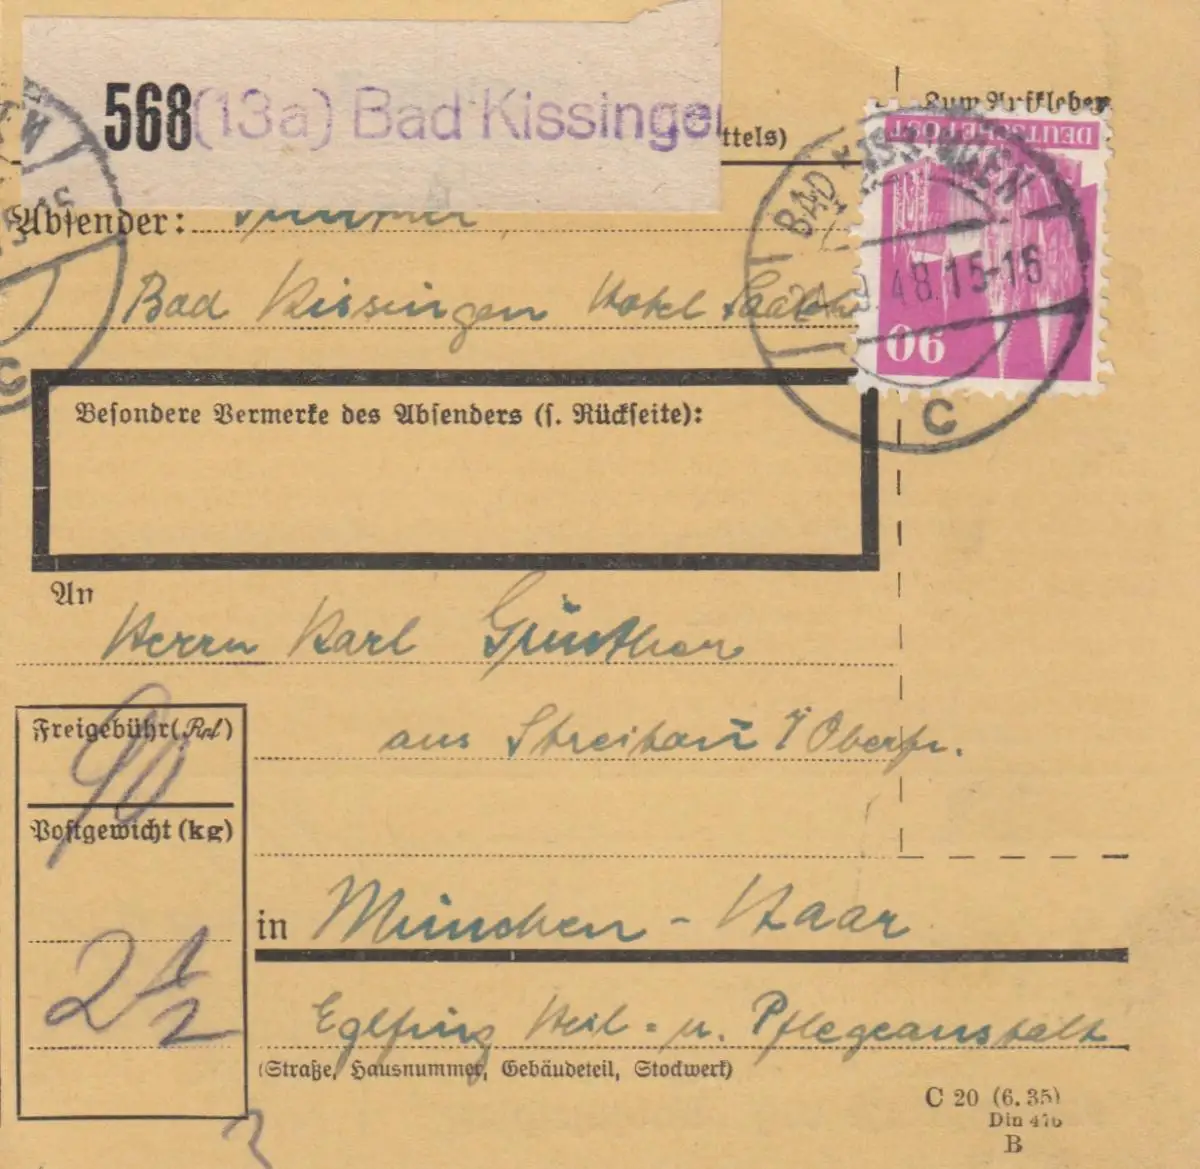 568 (13a) Bad Kissingen
ttels)
Zum Aufkleben
DEUTSCHE POST
90
BAD KISSINGEN
48.15-16
C
C
Absender:
Bad Kissingen Hotel
Besondere Vermerke des Absenders (s. Rückseite):
An
Herrn Karl Günther
aus Streitau i/ Oberfr.
Freigebühr (Rpf)
90
Postgewicht (kg)
2 1/2
in München - Haar
Eglfing Heil- u. Pflegeanstalt
(Straße, Hausnummer, Gebäudeteil, Stockwerk)
C 20 (6. 35)
Din 476
B